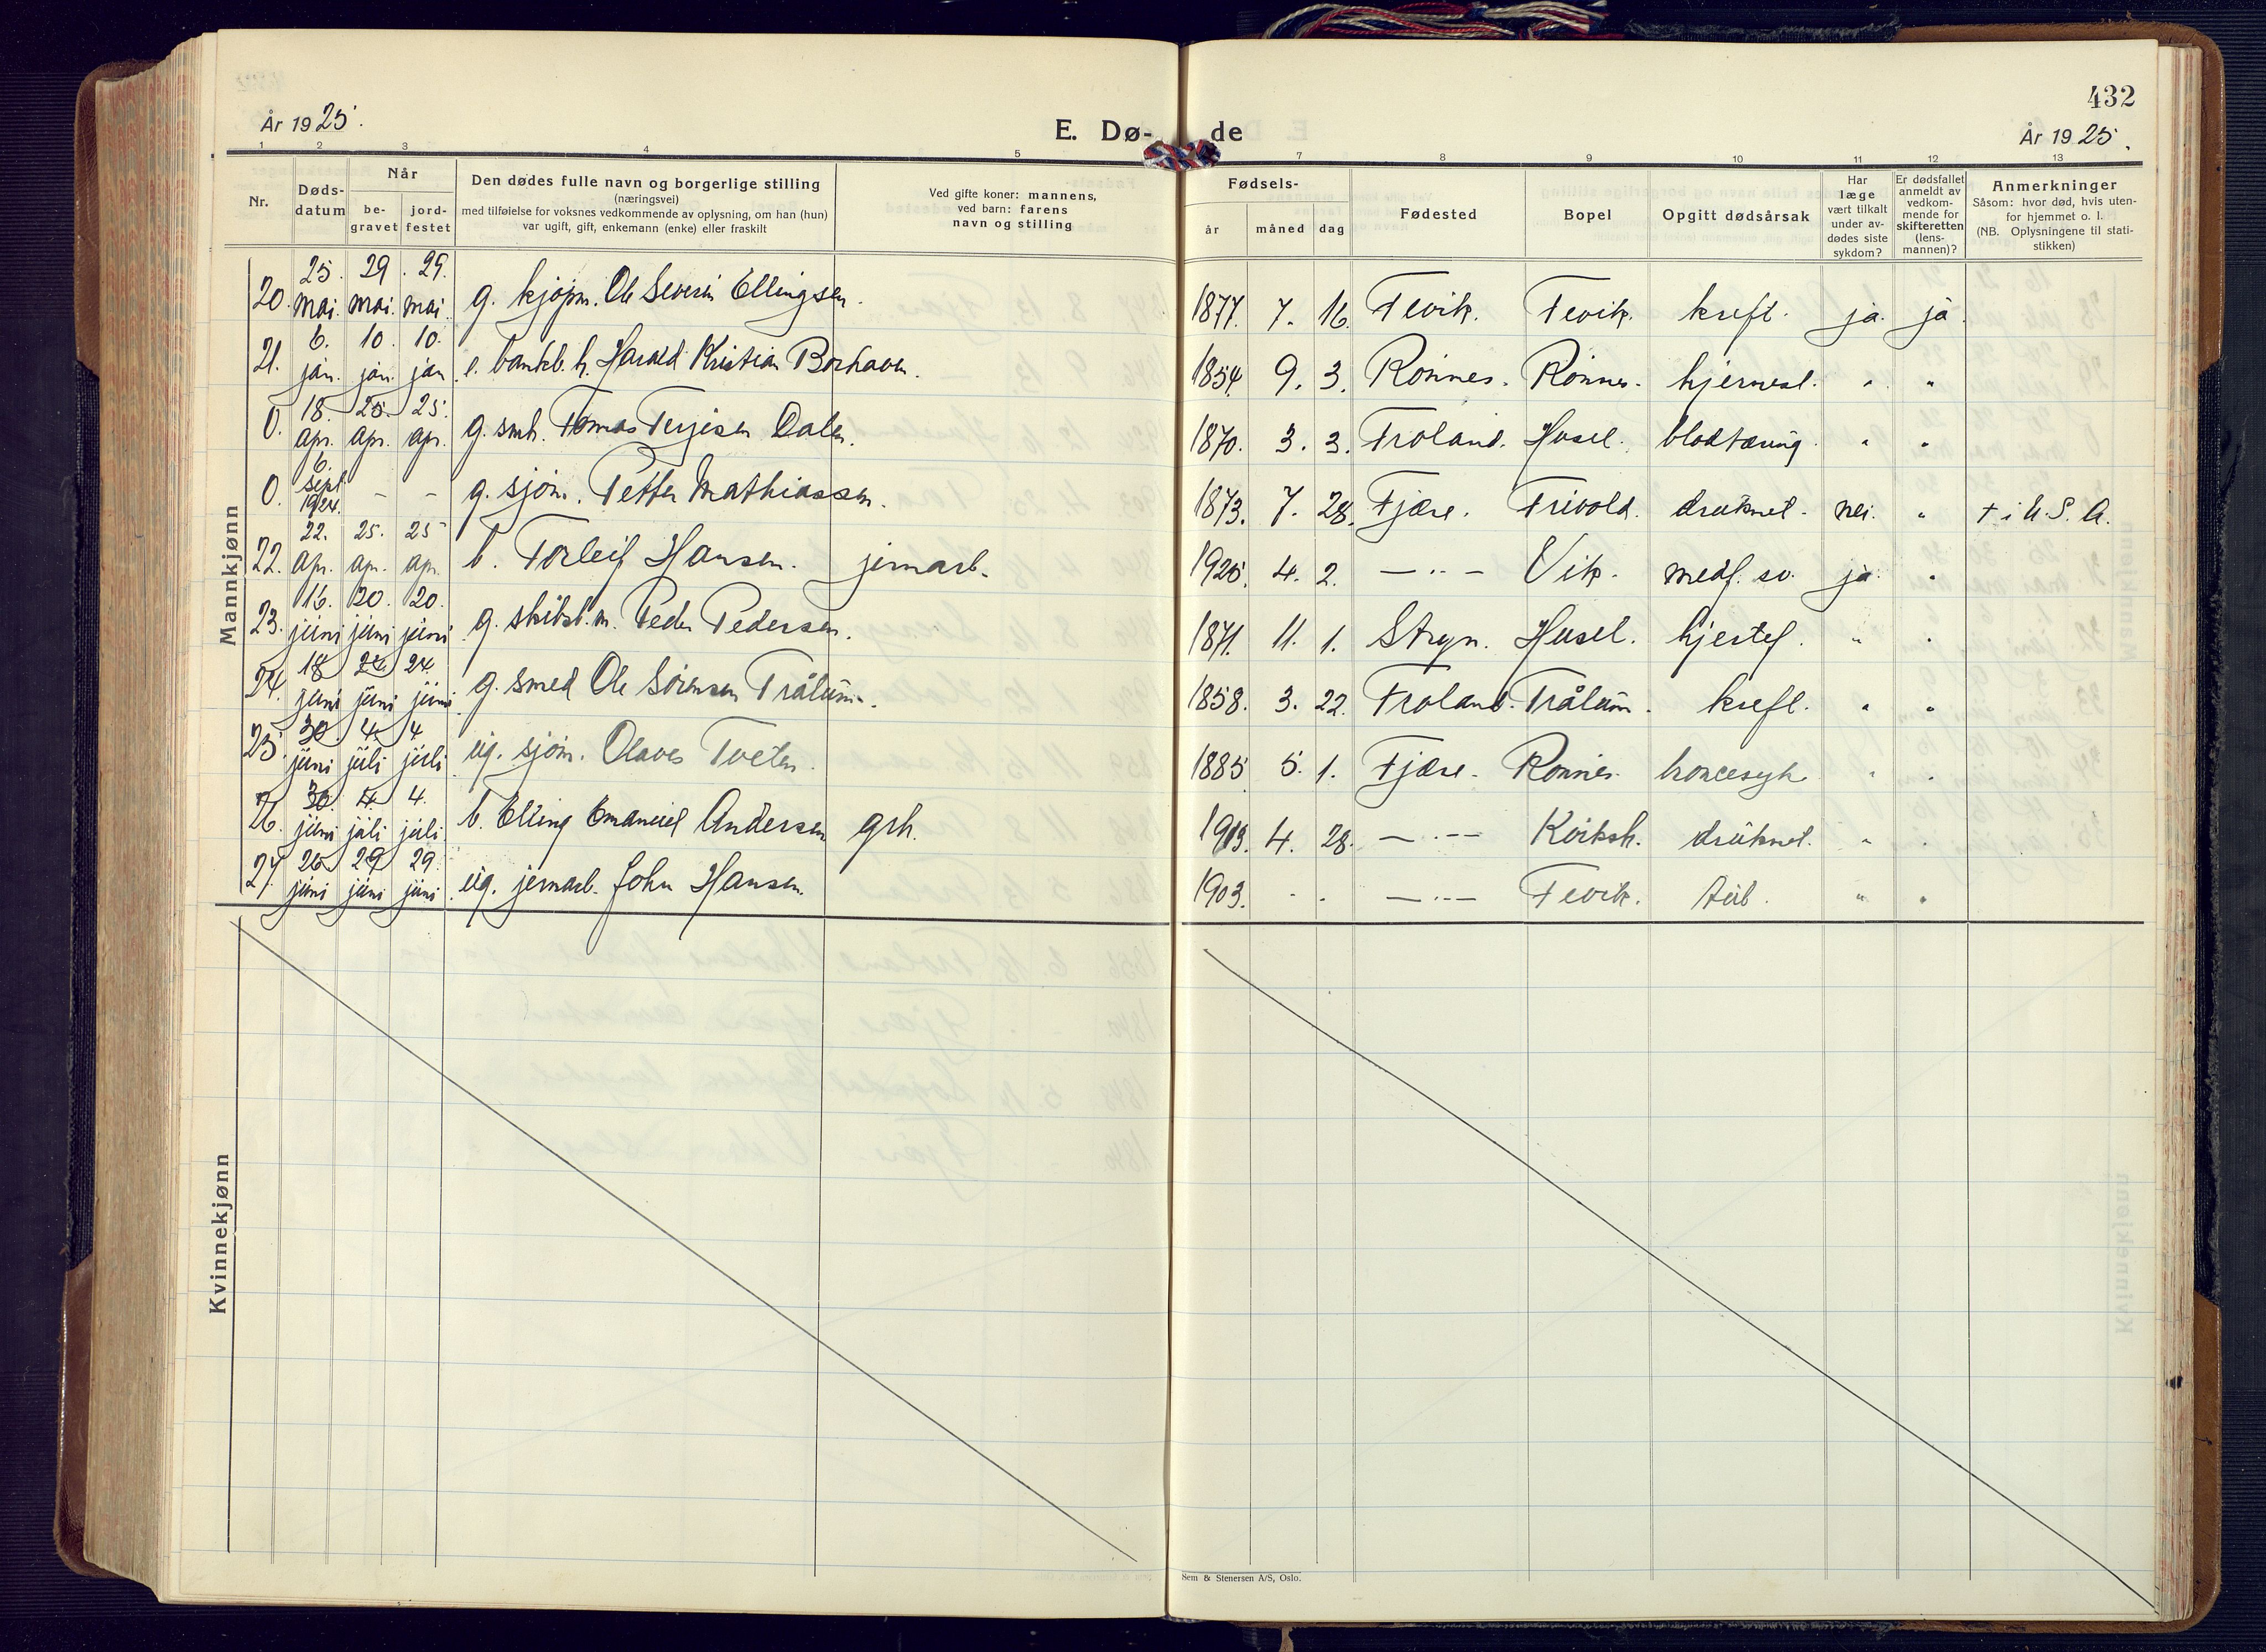 432
År 1925.
E. Dø-
de
År 1925.
1 2 3 4 5 7 8 9 10 11 12 13
Nr.
Døds-
datum
Når
be-
gravet
jord-
festet
Den dødes fulle navn og borgerlige stilling
(næringsvei)
med tilføielse for voksnes vedkommende av oplysning, om han (hun)
var ugift, gift, enkemann (enke) eller fraskilt
Ved gifte koner: mannens,
ved barn: farens
navn og stilling
Fødsels-
år måned dag
Fødested
Bopel
Opgitt dødsårsak
Har
læge
vært tilkalt
under av-
dødes siste
sykdom?
Er dødsfallet
anmeldt av
vedkom-
mende for
skifteretten
(lens-
mannen)?
Anmerkninger
Såsom: hvor død, hvis uten-
for hjemmet o. l.
(NB. Oplysningene til stati-
stikken)
Mannkjønn
20. 25. mai. 29. mai. 29. mai. g. kjøpm. Ole Severin Ellingsen. 1877. 7. 16. Fevik. Fevik. kreft. ja. ja.
21. 6. jan. 10. jan. 10. jan e. bankb. h. Harald Kristian Borhaven. 1854. 9. 3. Rønnes. Rønnes. hjernesl. " "
0. 18. apr. 25. apr. 25. apr. g. smh. Tomas Terjesen Dalen. 1870. 3. 3. Froland. Hasel. blodtæring. " "
0. 6. sept 1924. - - g. sjøm. Petter Mathiassen. 1873. 7. 28. Fjære. Frivold. druknet. nei. " + i U. S. A.
22. 22. apr. 25. apr. 25 apr. b. Torleif Hansen. jernarb. 1925. 4. 2. — " — Vik. medf. sv. ja. "
23. 16. juni 20. juni 20. juni g. skibst.m. Peder Pedersen. 1871. 11. 1. Stryn. Hasel. hjertef. " "
24. 18 juni 24. juni 24. juni g. smed Ole Sørensen Trålum. 1858. 3. 22. Froland. Trålum. kreft. " "
25. 30 juni 4. juli 4 juli ug. sjøm. Olaves Tveten. 1885 5. 1. Fjære. Rønnes. " "
26. 30. juni 4. juli 4. juli b. Elling Emanuel Andersen grh. 1919. 4. 28. — " — Kviksh. druknet. " "
27. 26 juni 29 juni 29. juni ug. jernarb. John Hansen. 1903. - - — " — Fevik. tub. " "
Kvinnekjønn
Sem & Stenersen A/S, Oslo.